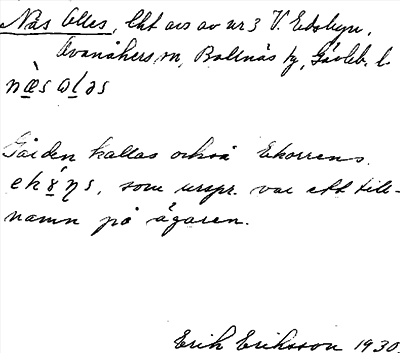 Näs Olles, lht avs av nr 3 V. Edsbyn,
Ovanåkers sn, Bollnäs tg, Gävleb. l.
Gården kallas också Ekorrens.
som urspr. var ett till-
namn på ägaren.
Erik Eriksson 1930.